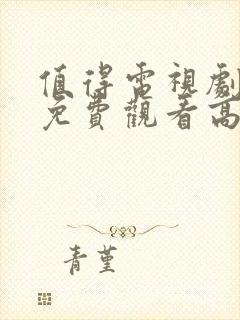 值得電視劇
免費觀看高
青堇